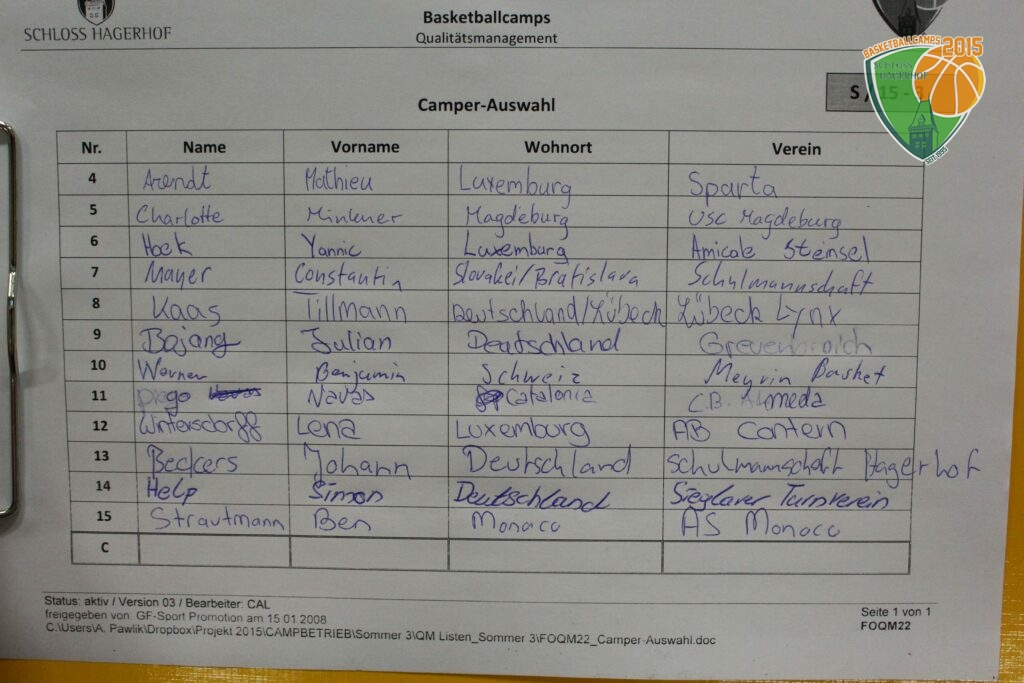 SCHLOSS HAGERHOF
Basketballcamps
Qualitätsmanagement
BASKETBALLCAMPS 2015
SCHLOSS HAGERHOF
SEIT 1995
S / 15 - 3
Camper-Auswahl
Nr. Name Vorname Wohnort Verein
4 Arendt Mathieu Luxemburg Sparta
5 Charlotte Minkner Magdeburg USC Magdeburg
6 Hoek Yannic Luxemburg Amicale Steinsel
7 Mayer Constantin Slovakei/Bratislava Schulmannschaft
8 Kaas Tillmann Deutschland/Lübeck Lübeck Lynx
9 Bojang Julian Deutschland Grevenbroich
10 Werner Benjamin Schweiz Meyrin Basket
11 Diogo Navas Catalonia C.B. Alomeda
12 Wintersdorff Lena Luxemburg AB Contern
13 Beckers Johann Deutschland Schulmannschaft Hagerhof
14 Help Simon Deutschland Sieglarer Turnverein
15 Strautmann Ben Monaco AS Monaco
C
Status: aktiv / Version 03 / Bearbeiter: CAL
freigegeben von: GF-Sport Promotion am 15.01.2008
C:\Users\A. Pawlik\Dropbox\Projekt 2015\CAMPBETRIEB\Sommer 3\QM Listen_Sommer 3\FOQM22_Camper-Auswahl.doc
Seite 1 von 1
FOQM22